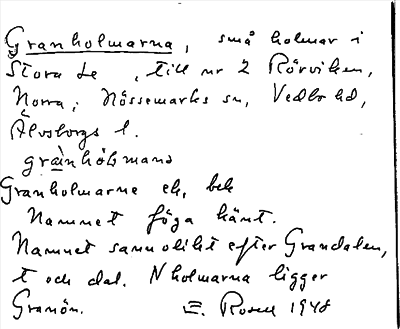 Granholmarna, små holmar i
Stora Le, till nr 2 Rörviken,
Norra; Nössemarks sn, Vedbo hd,
Älvsborgs l.
grànhólmana
Granholmarne ek, bek
Namnet föga känt.
Namnet sannolikt efter Grandalen,
t och dal. N holmarna ligger
Granön. E. Rosell 1948